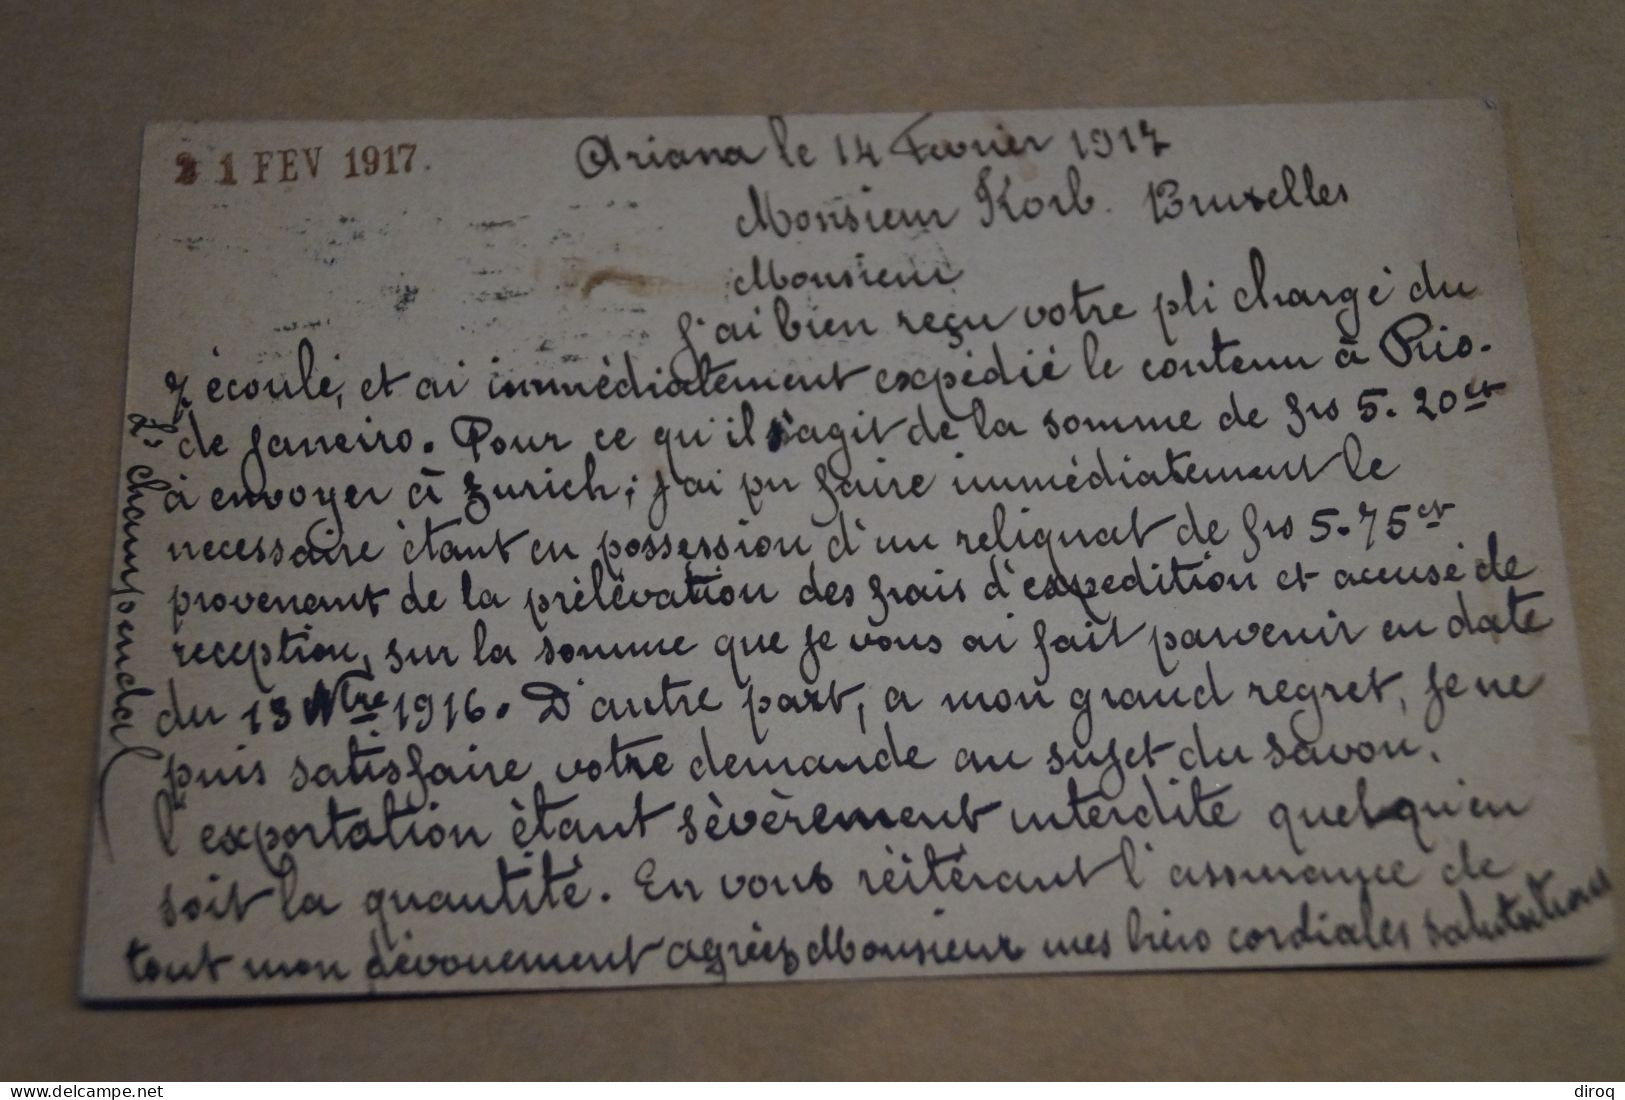 21 FEV 1917.
Ariana le 14 Fevrier 1917
Monsieur Korb. Bruxelles
Monsieur
J'ai bien reçu votre pli chargé du
7 écoulé, et ai immédiatement expédié le contenu à Rio-
de Janeiro. Pour ce qu'il s'agit de la somme de frs 5.20 ct
à envoyer à Zurich; j'ai pu faire immédiatement le
necessaire étant en possession d'un reliquat de frs 5.75 ct
provenant de la prélévation des frais d'expedition et accusé de
reception, sur la somme que je vous ai fait parvenir en date
du 13 Nbre 1916. D'autre part, a mon grand regret, je ne
puis satisfaire votre demande au sujet du savon,
l'exportation étant sévèrement interdite quelqu'en
soit la quantité. En vous réitérant l'assurance de
tout mon dévouement agréez Monsieur mes bien cordiales salutations
L. Champendal
© delcampe.net
diroq